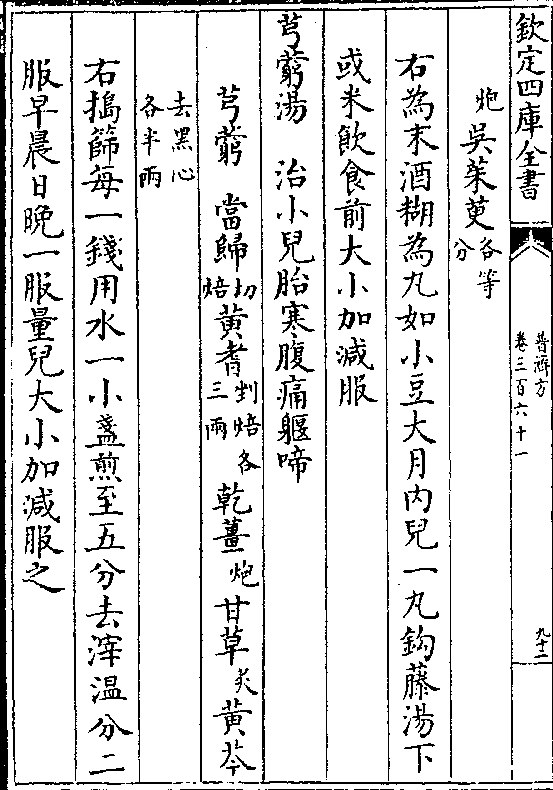 欽定四庫全書
普濟方
卷三百六十一
九十二
炮吳茱萸各等分
右為末酒糊為丸如小豆大月内兒一丸鈎藤湯下
或米飲食前大小加減服
芎藭湯　治小兒胎寒腹痛軀啼
芎藭　當歸切焙黄耆剉焙各三兩乾薑炮甘草炙黄芩
去黒心各半兩
右搗篩每一錢用水一小盞煎至五分去滓温分二
服早晨日晚一服量兒大小加減服之